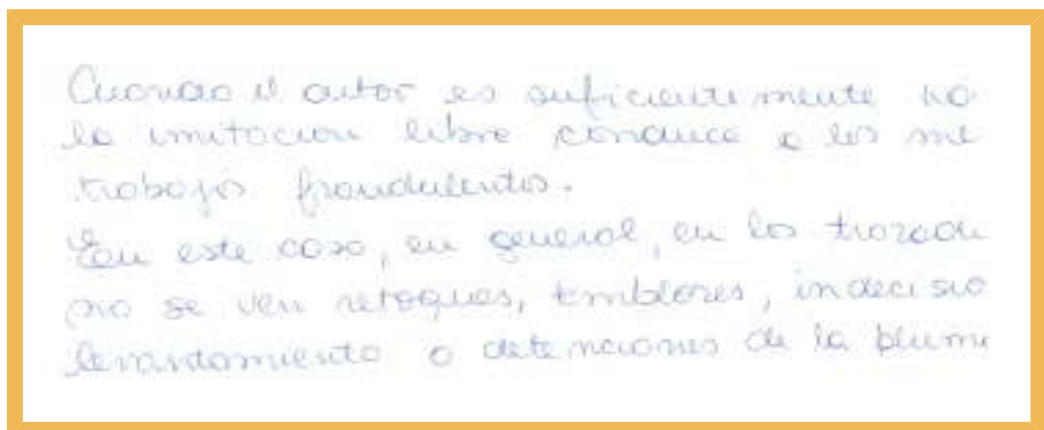 Cuando el autor es suficientemente há
la imitacion libre conduce a los me
trabajos fraudulentos.
En este caso, en general, en los trazado
no se ven retoques, temblores, indecisio
levantamiento o detenciones de la pluma